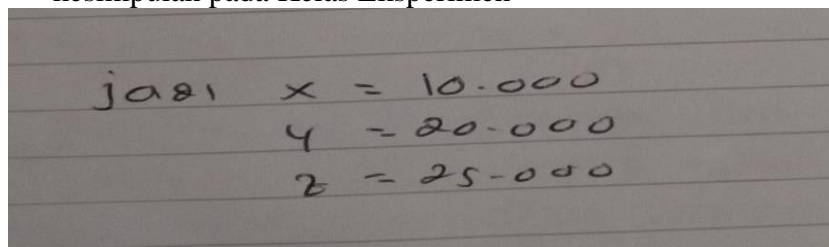 jadi x = 10.000
y = 20.000
z = 25.000